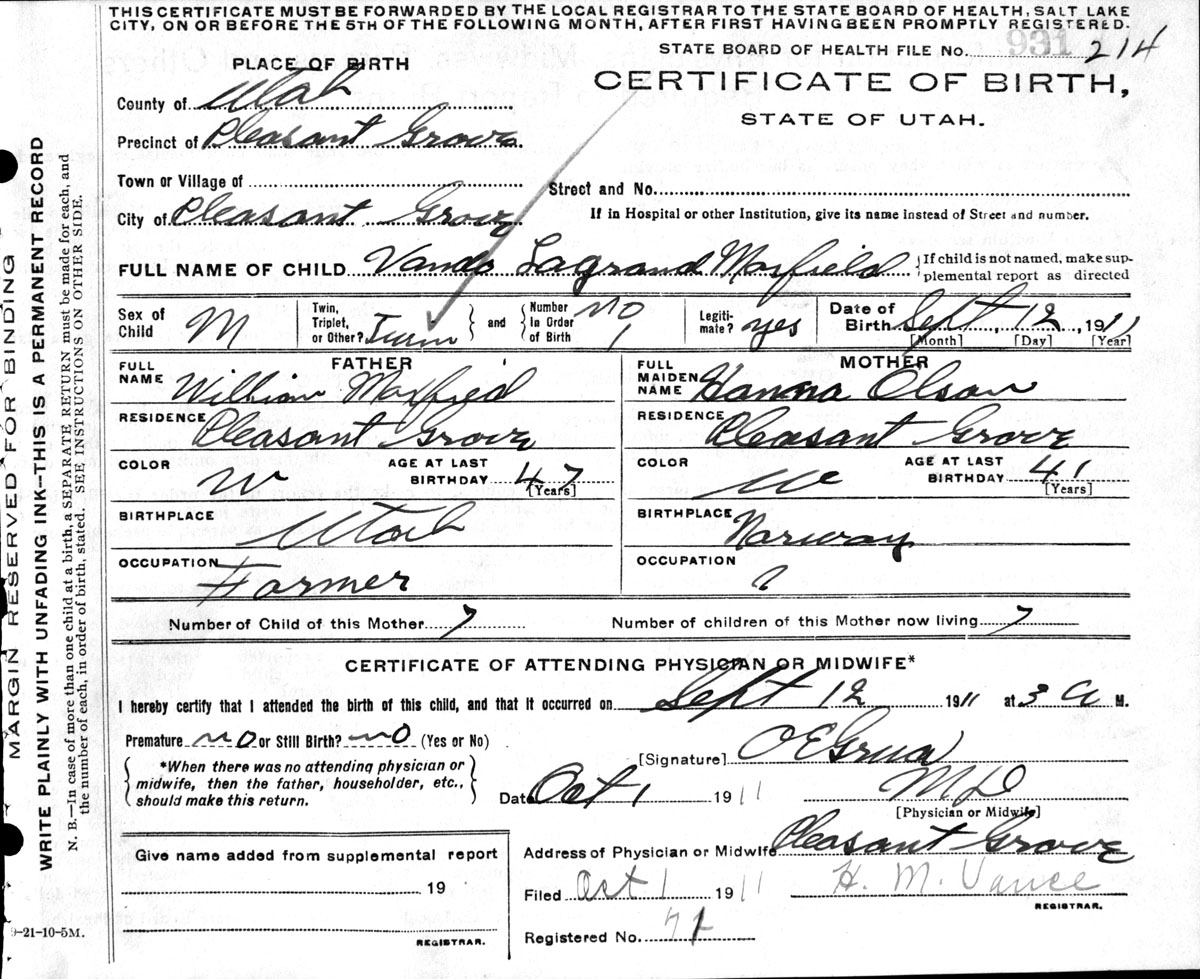 THIS CERTIFICATE MUST BE FORWARDED BY THE LOCAL REGISTRAR TO THE STATE BOARD OF HEALTH, SALT LAKE
CITY, ON OR BEFORE THE 5TH OF THE FOLLOWING MONTH, AFTER FIRST HAVING BEEN PROMPTLY REGISTERED.
STATE BOARD OF HEALTH FILE No. 931 214
PLACE OF BIRTH
CERTIFICATE OF BIRTH,
STATE OF UTAH.
County of Utah
Precinct of Pleasant Grove
Town or Village of
Street and No.
City of Pleasant Grove
If in Hospital or other Institution, give its name instead of Street and number.
FULL NAME OF CHILD Vando Lagrand Maxfield { If child is not named, make sup-
plemental report as directed
Sex of Child M
Twin, Triplet, or Other? Twin } and { Number In Order of Birth no 1
Legiti-mate? yes
Date of Birth Sept 12, 1911
[Month] [Day] [Year]
FATHER
FULL NAME William Maxfield
RESIDENCE Pleasant Grove
COLOR W
AGE AT LAST BIRTHDAY 47 [Years]
BIRTHPLACE Utah
OCCUPATION Farmer
MOTHER
FULL MAIDEN NAME Hanna Olson
RESIDENCE Pleasant Grove
COLOR W
AGE AT LAST BIRTHDAY 41 [Years]
BIRTHPLACE Norway
OCCUPATION ?
Number of Child of this Mother 7 Number of children of this Mother now living 7
CERTIFICATE OF ATTENDING PHYSICIAN OR MIDWIFE*
I hereby certify that I attended the birth of this child, and that it occurred on Sept 12 1911 at 3 a M.
Premature no or Still Birth? no (Yes or No)
{ *When there was no attending physician or
midwife, then the father, householder, etc.,
should make this return. }
[Signature] O E Grua
Date Oct 1 1911 MD
[Physician or Midwife]
Give name added from supplemental report
19
REGISTRAR.
Address of Physician or Midwife Pleasant Grove
Filed Oct 1 1911 H. M. Vance
REGISTRAR.
Registered No.
9-21-10-5M.
MARGIN RESERVED FOR BINDING
WRITE PLAINLY WITH UNFADING INK—THIS IS A PERMANENT RECORD
N. B.—In case of more than one child at a birth, a SEPARATE RETURN must be made for each, and
the number of each, in order of birth, stated. SEE INSTRUCTIONS ON OTHER SIDE.